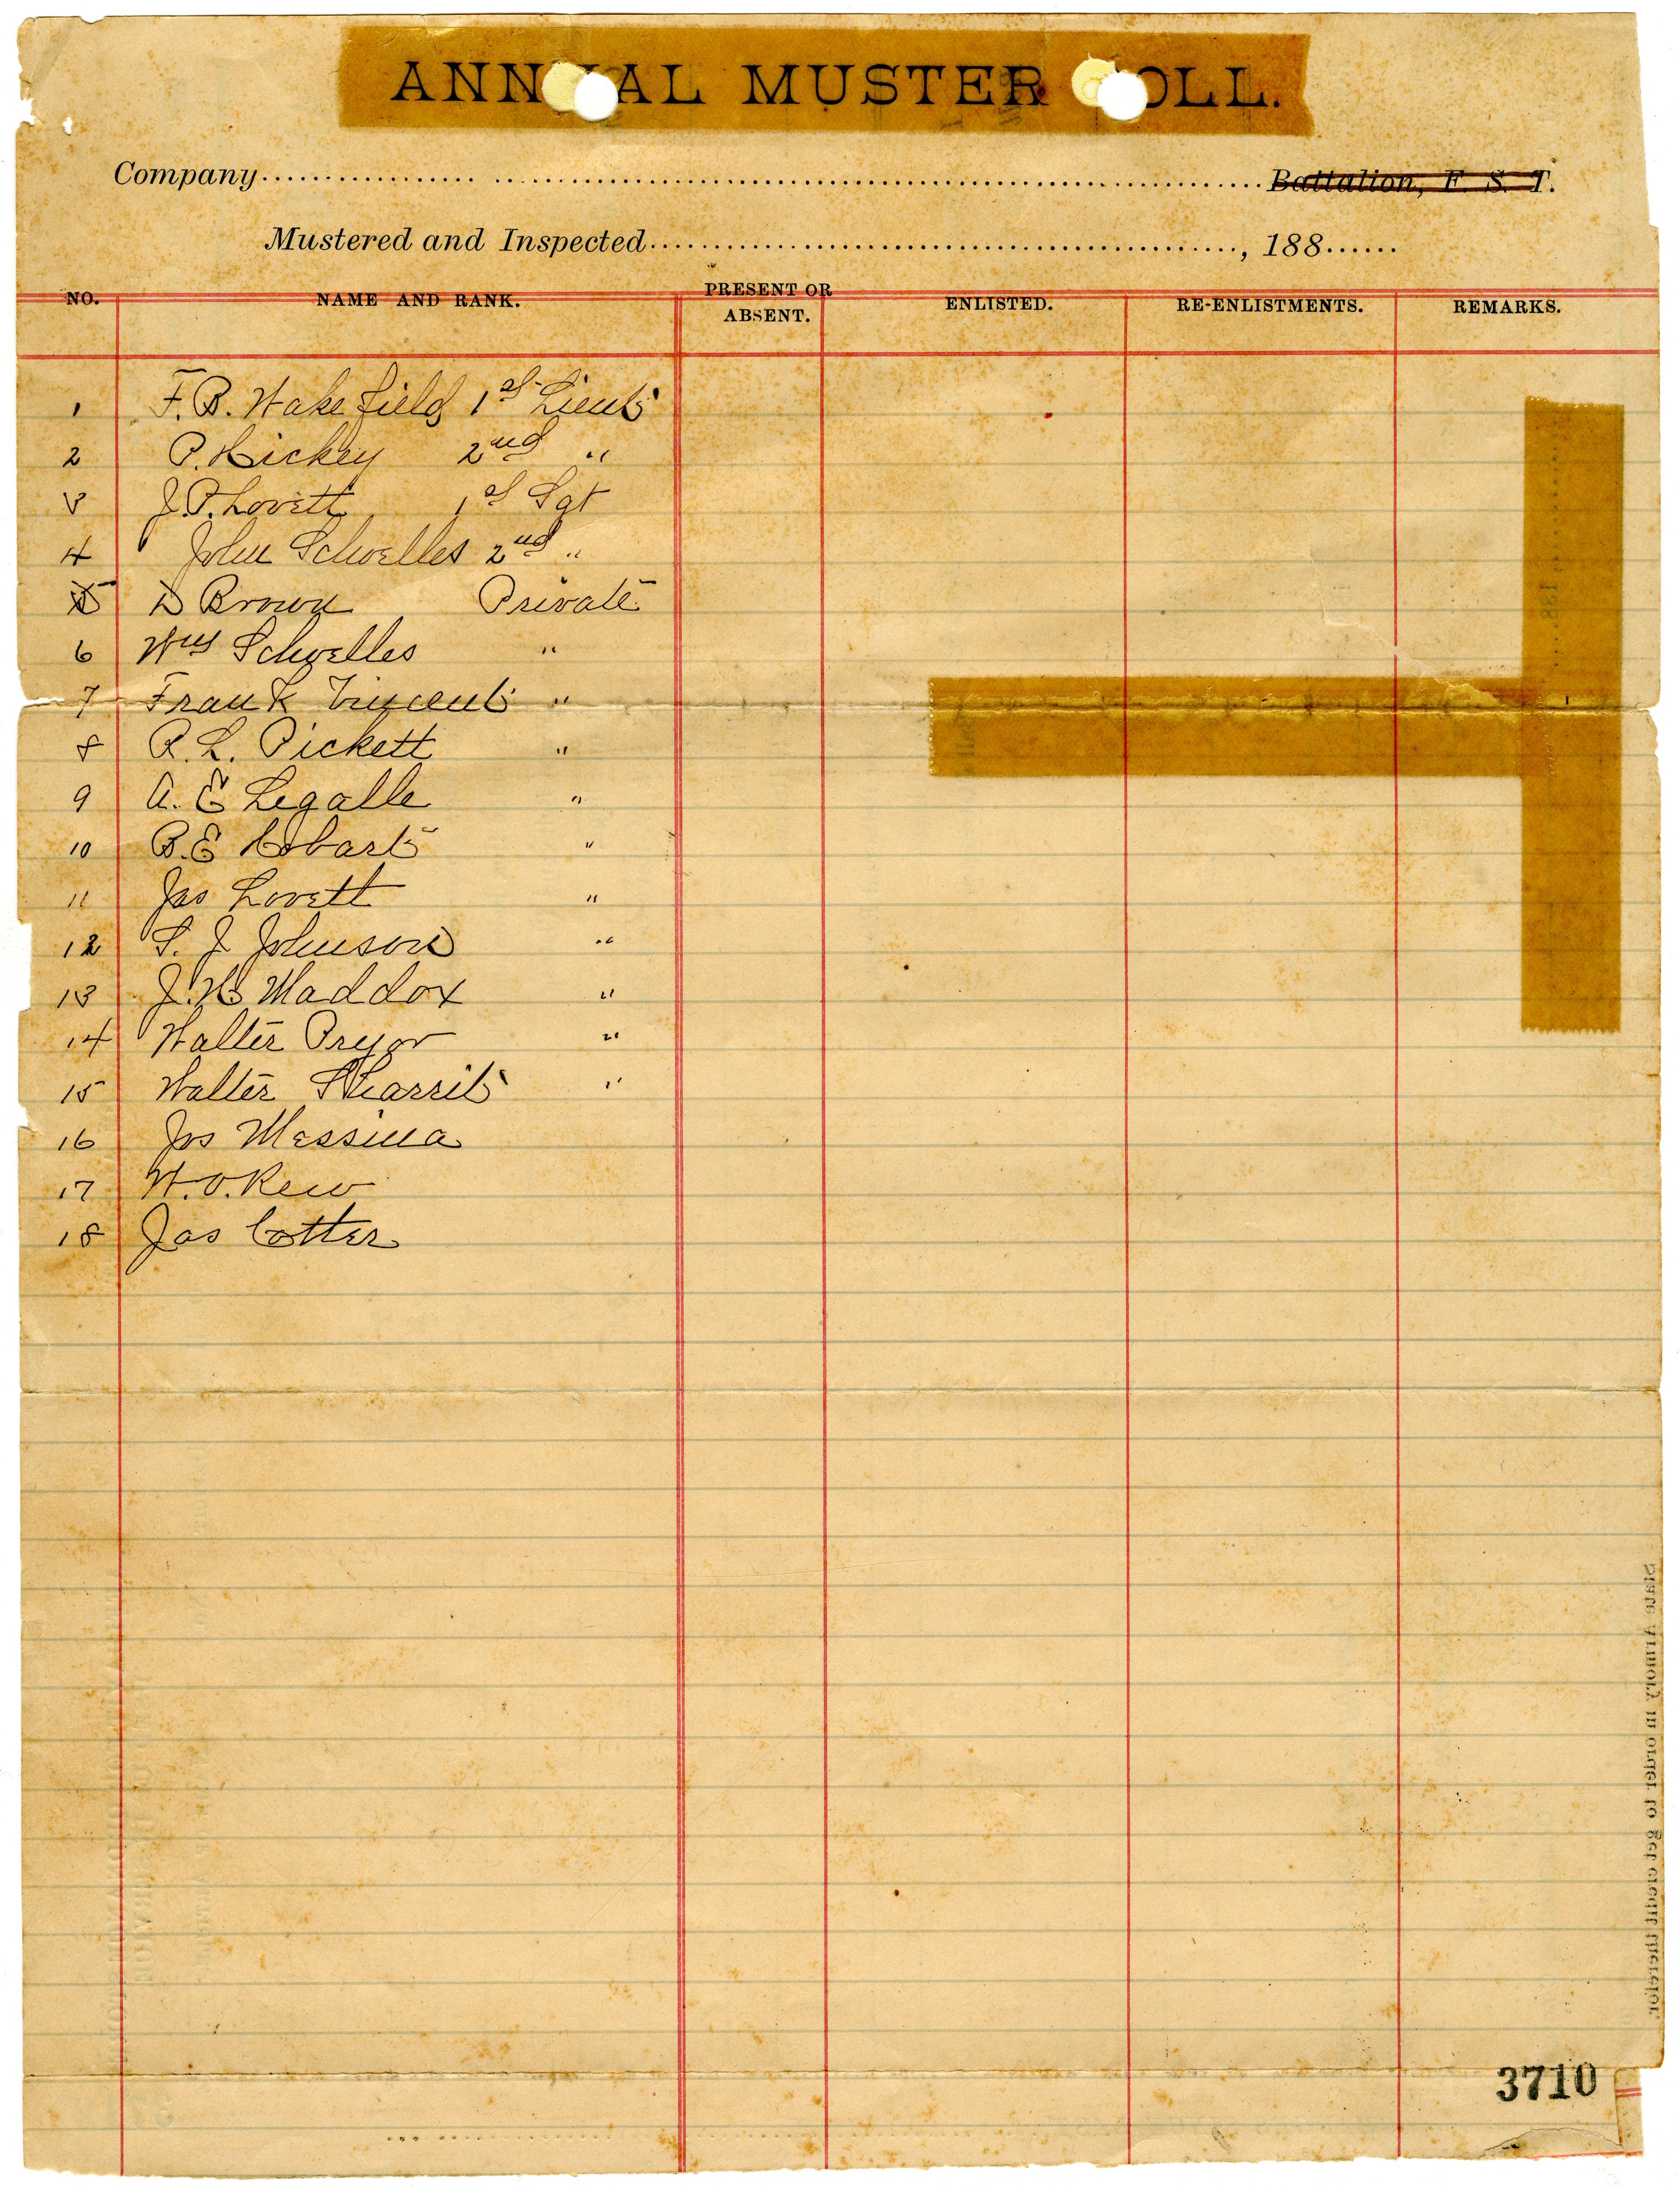 ANNUAL MUSTER ROLL.
Company Battalion, F. S. T.
Mustered and Inspected , 188
NO. NAME AND RANK. PRESENT OR ABSENT. ENLISTED. RE-ENLISTMENTS. REMARKS.
1 F. B. Wakefield 1st Lieut
2 P. Hickey 2nd "
3 J. P. Lovett 1st Sgt
4 John Schoelles 2nd "
5 D Brown Private
6 Wm Schoelles "
7 Frank Vincent "
8 R. L. Pickett "
9 A. E Legalle "
10 B. E Hobart "
11 Jas Lovett "
12 S. J Johnson "
13 J. H Maddox "
14 Walter Pryor "
15 Walter "
16 Jos Messina
17 W. O. Rew
18 Jas Cotter
State Armory in order to get credit therefor.
3710